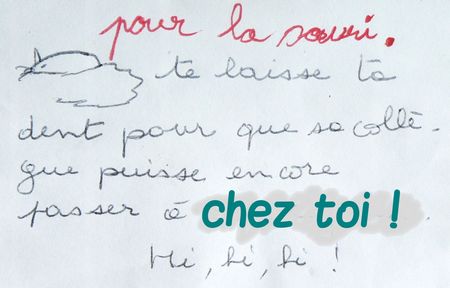 pour la souri.
te laisse ta
dent pour que sa collè-
gue puisse encore
passer à chez toi !
Hi, hi, hi !